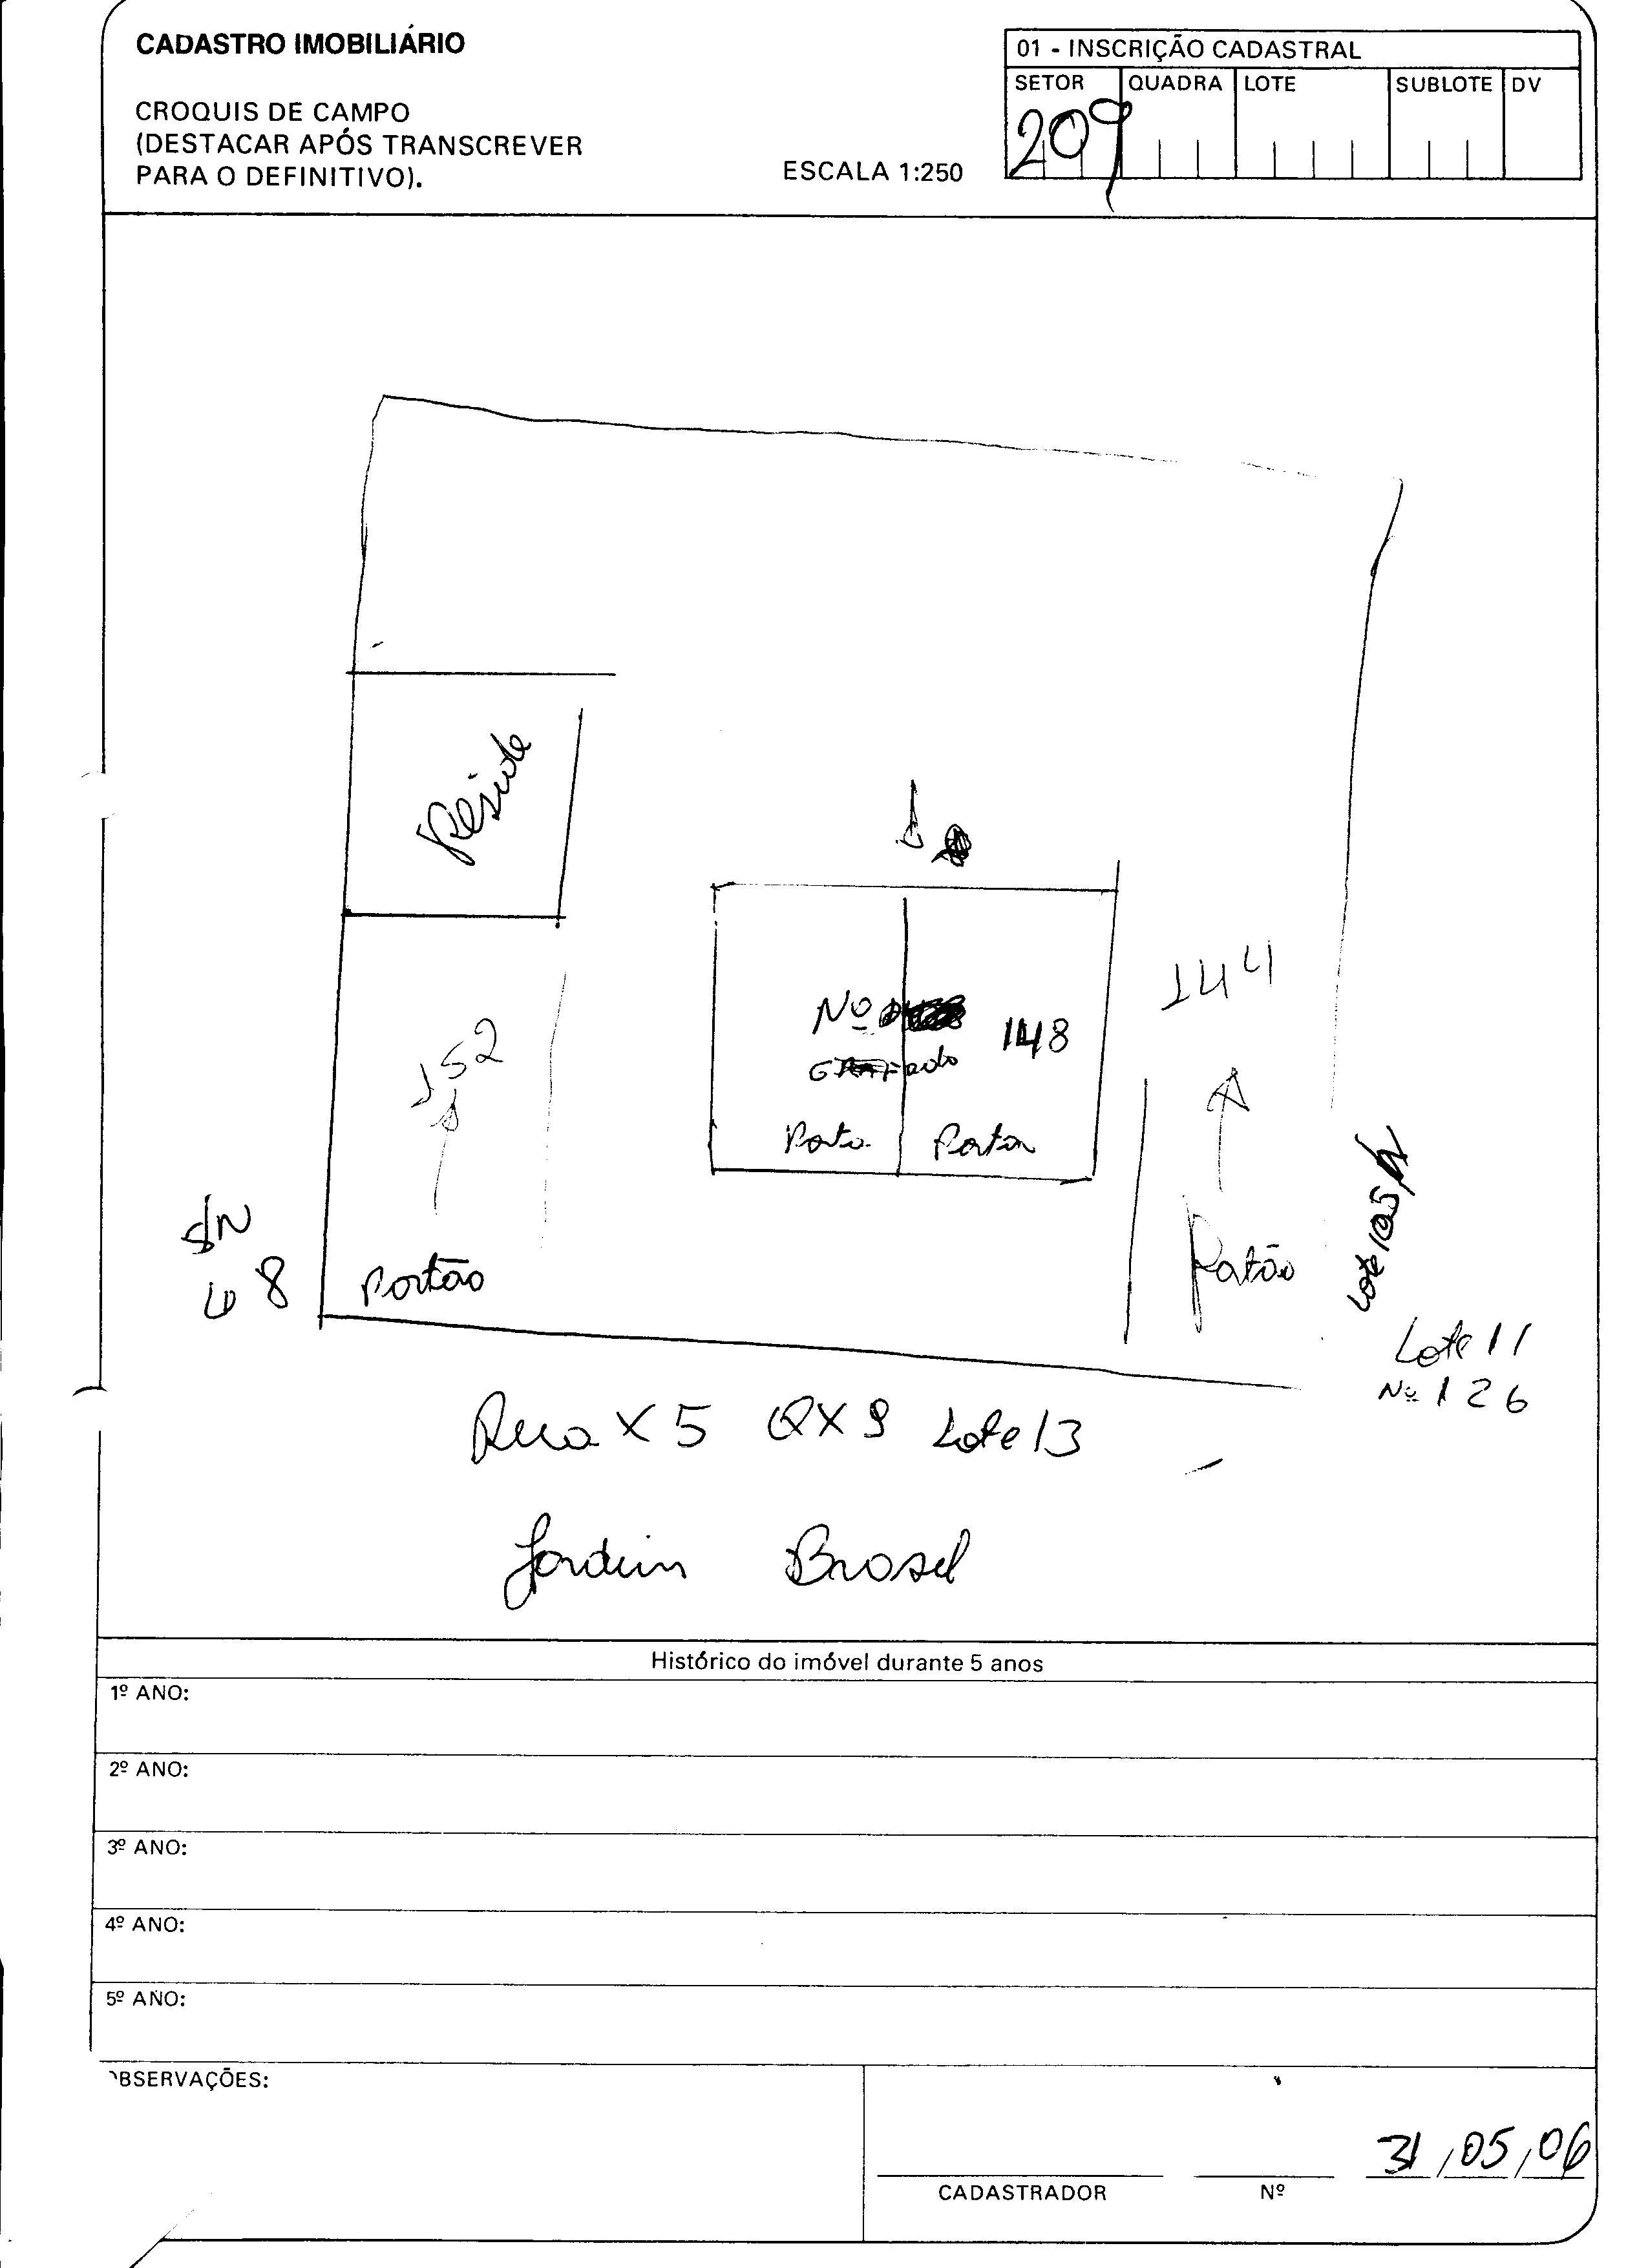 CADASTRO IMOBILIÁRIO
CROQUIS DE CAMPO
(DESTACAR APÓS TRANSCREVER
PARA O DEFINITIVO).
ESCALA 1:250
01 - INSCRIÇÃO CADASTRAL
SETOR QUADRA LOTE SUBLOTE DV
209
Reside
144
Nº
148
152
Porta
Portão
S/N
68
Portão
Portão
Lote 11
Nº 126
Rua X5 QX9 Lote 13
Jardim Brasil
Histórico do imóvel durante 5 anos
1º ANO:
2º ANO:
3º ANO:
4º ANO:
5º ANO:
BSERVAÇÕES:
31/05/06
CADASTRADOR Nº